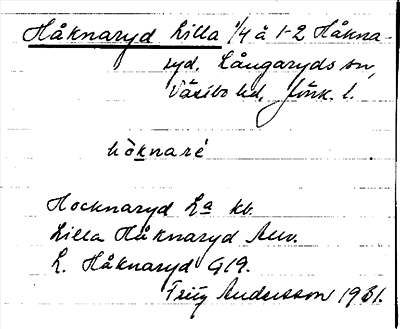 Håknaryd Lilla 1/4 å 1-2 Håkna-
ryd, Långaryds sn,
Västbo hd, Jönk. l.
hòknaré
Hocknaryd La kb.
Lilla Håknaryd Auv.
L. Håknaryd G19.
Frity Andersson 1931.